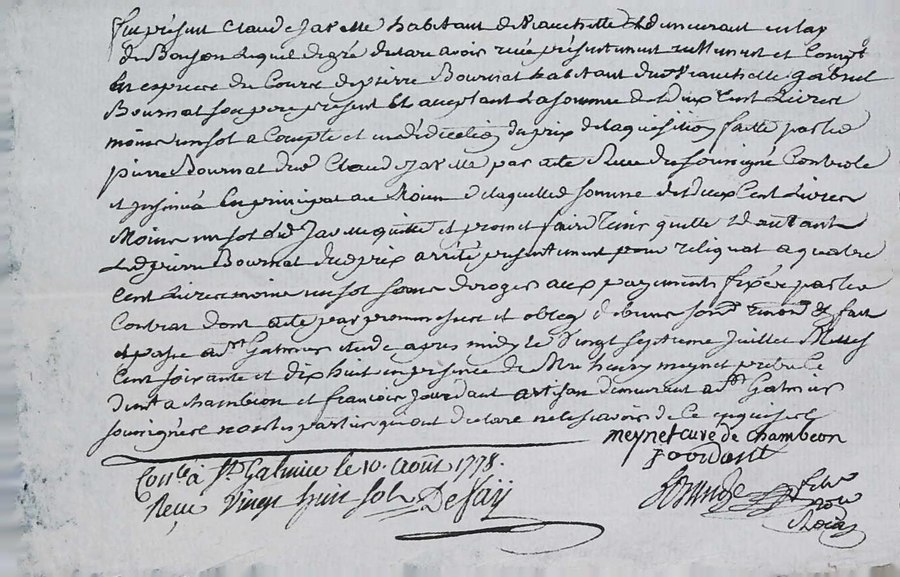 Fut présent Claude Javelle habitant de Vranchelle et demeurant en lad
de Boyson lequel de gré declare avoir receu présentement reellement et compt
en especes de cours de pierre Bournat habitant dud Vranchelle gabriel
Bournat son pere present et acceptant La somme de deux Cent Livres
moins un sol a Compte et du prix delaquisition faitte par led
pierre Bournat dud Claude Javelle par acte Receu du soussigné Controlé
et insinué en principal au Moien delaquelle somme de deux Cent Livres
Moins un sol led Javelle quitte et promet faire tenir quitte d'autant
Led pierre Bournat du prix arrêté presentement pour reliquat a quatre
Cent Livres moins un sol sans deroger aux payements fixés par led
Contrat dont acte par promesses et oblig de biens soum renon & fait
et passé a St Galmier etude apres midy le Vingt septieme Juillet Mil sept
Cent soixante et dix huit en presence de Mre henry meynet pretre Curé
dud Chambeon et francois Jourdant artisan demeurant a St Galmier
soussignés non les parties qui ont declaré ne le scavoir de ce enquises
meynet curé de chambeon
jourdant
Conlé à St Galmier le 10. août 1778.
Reçu Vingt huit sols Defaÿ